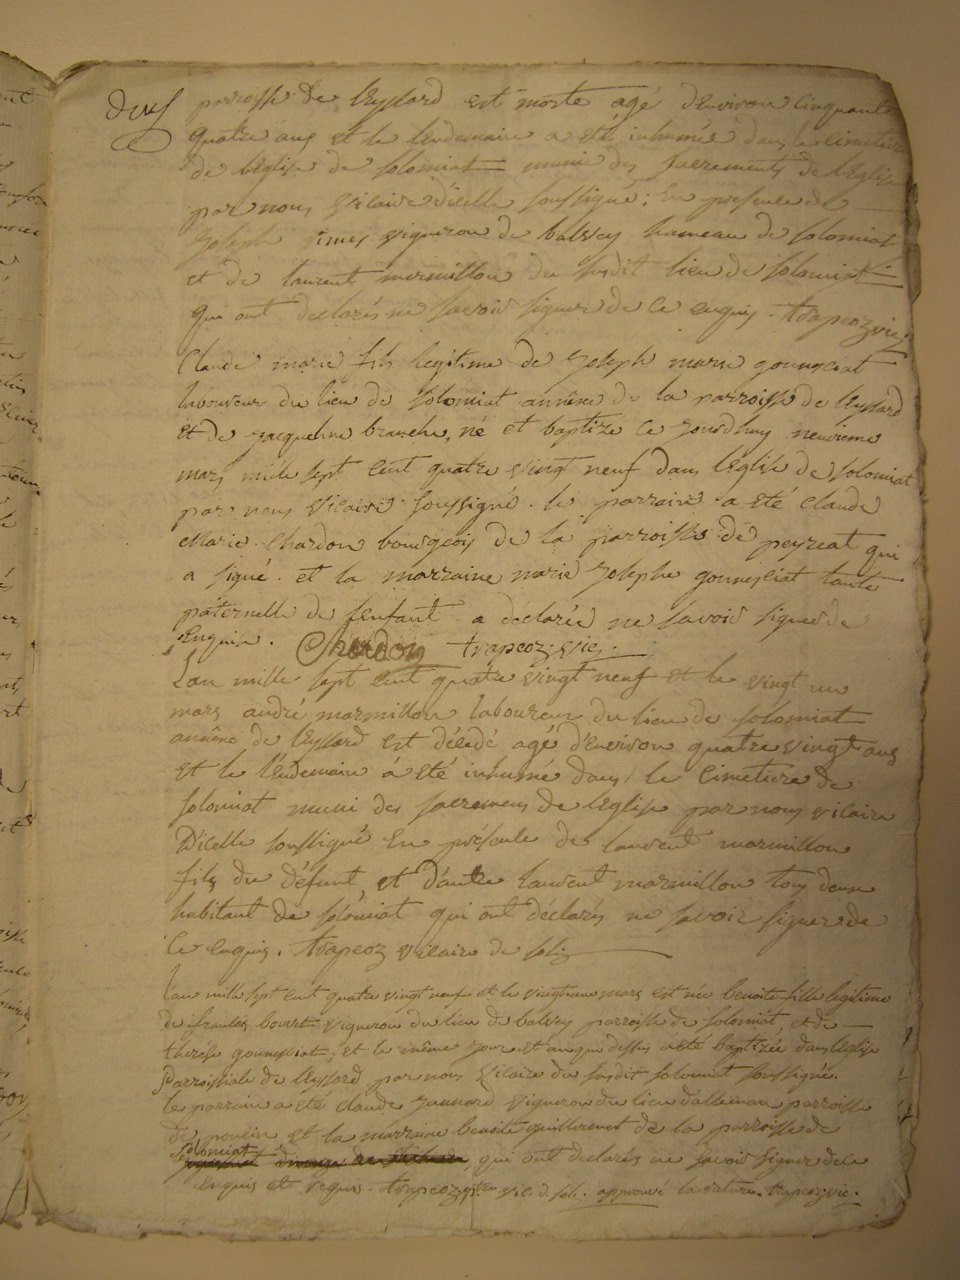 deux
parroisse de leyssard est morte agé d'environ cinquante
quatre ans et le lendemain a eté inhumée dans le cimetiere
de leglise de solomiat munie des sacrements de leglise
par nous vicaire dicelle soussigné; en presence de
joseph vigneron de balvey hameau de solomiat
et de laurent mermillon du susdit lieu de solomiat
qui ont declarés ne savoir signer de ce enquis. trapeoz vic.
Claude marie fils legitime de joseph marie gounesciat
laboureur du lieu de solomiat annéxe de la parroisse de leyssard
et de jacqueline branche, né et baptize ce jourdhuy neuvieme
mars mille sept cent quatre vingt neuf dans leglise de solomiat
par nous vicaire soussigné. le parrain a eté claude
Marie Chardon bourgeois de la parroisse de peyreat qui
a signé. et la marraine marie josephe gounesciat tante
paternelle de lenfant a declarée ne savoir signer de
enquise. Chardon trapeoz vic.
L'an mille sept cent quatre vingt neuf et le vingt un
mars andré marmillon laboureur du lieu de solomiat
annéxe de leyssard est décedé agé d'environ quatre vingt ans
et le lendemain á eté inhumé dans le cimetiere de
solomiat muni des sacremens de leglise par nous vicaire
Dicelle soussigné en présence de laurent marmillon
fils du défunt, et d'autre laurent marmillon tous deux
habitant de solomiat qui ont déclarés ne savoir signer de
ce enquis. trapeoz vicaire de sol.
l'an mille sept cent quatre vingt neuf et le vingt mars est née benoite fille legitime
de francois bouvet vigneron du lieu de balvey parroisse de solomiat, et de
thérése gounesciat; et le même jour et an que dessus a eté baptizée dans leglise
Parroissiale de leyssard par nous vicaire du susdit solomiat soussigné.
le parrain a eté claude vigneron du lieu dalleman parroisse
de poulin et la marraine benoite guillermet de la parroisse de
Solomiat
qui ont declarés ne savoir signer de la
enquis et requis. trapeoz ptre vic. d. sol. approuvé la rature. trapeoz vic.